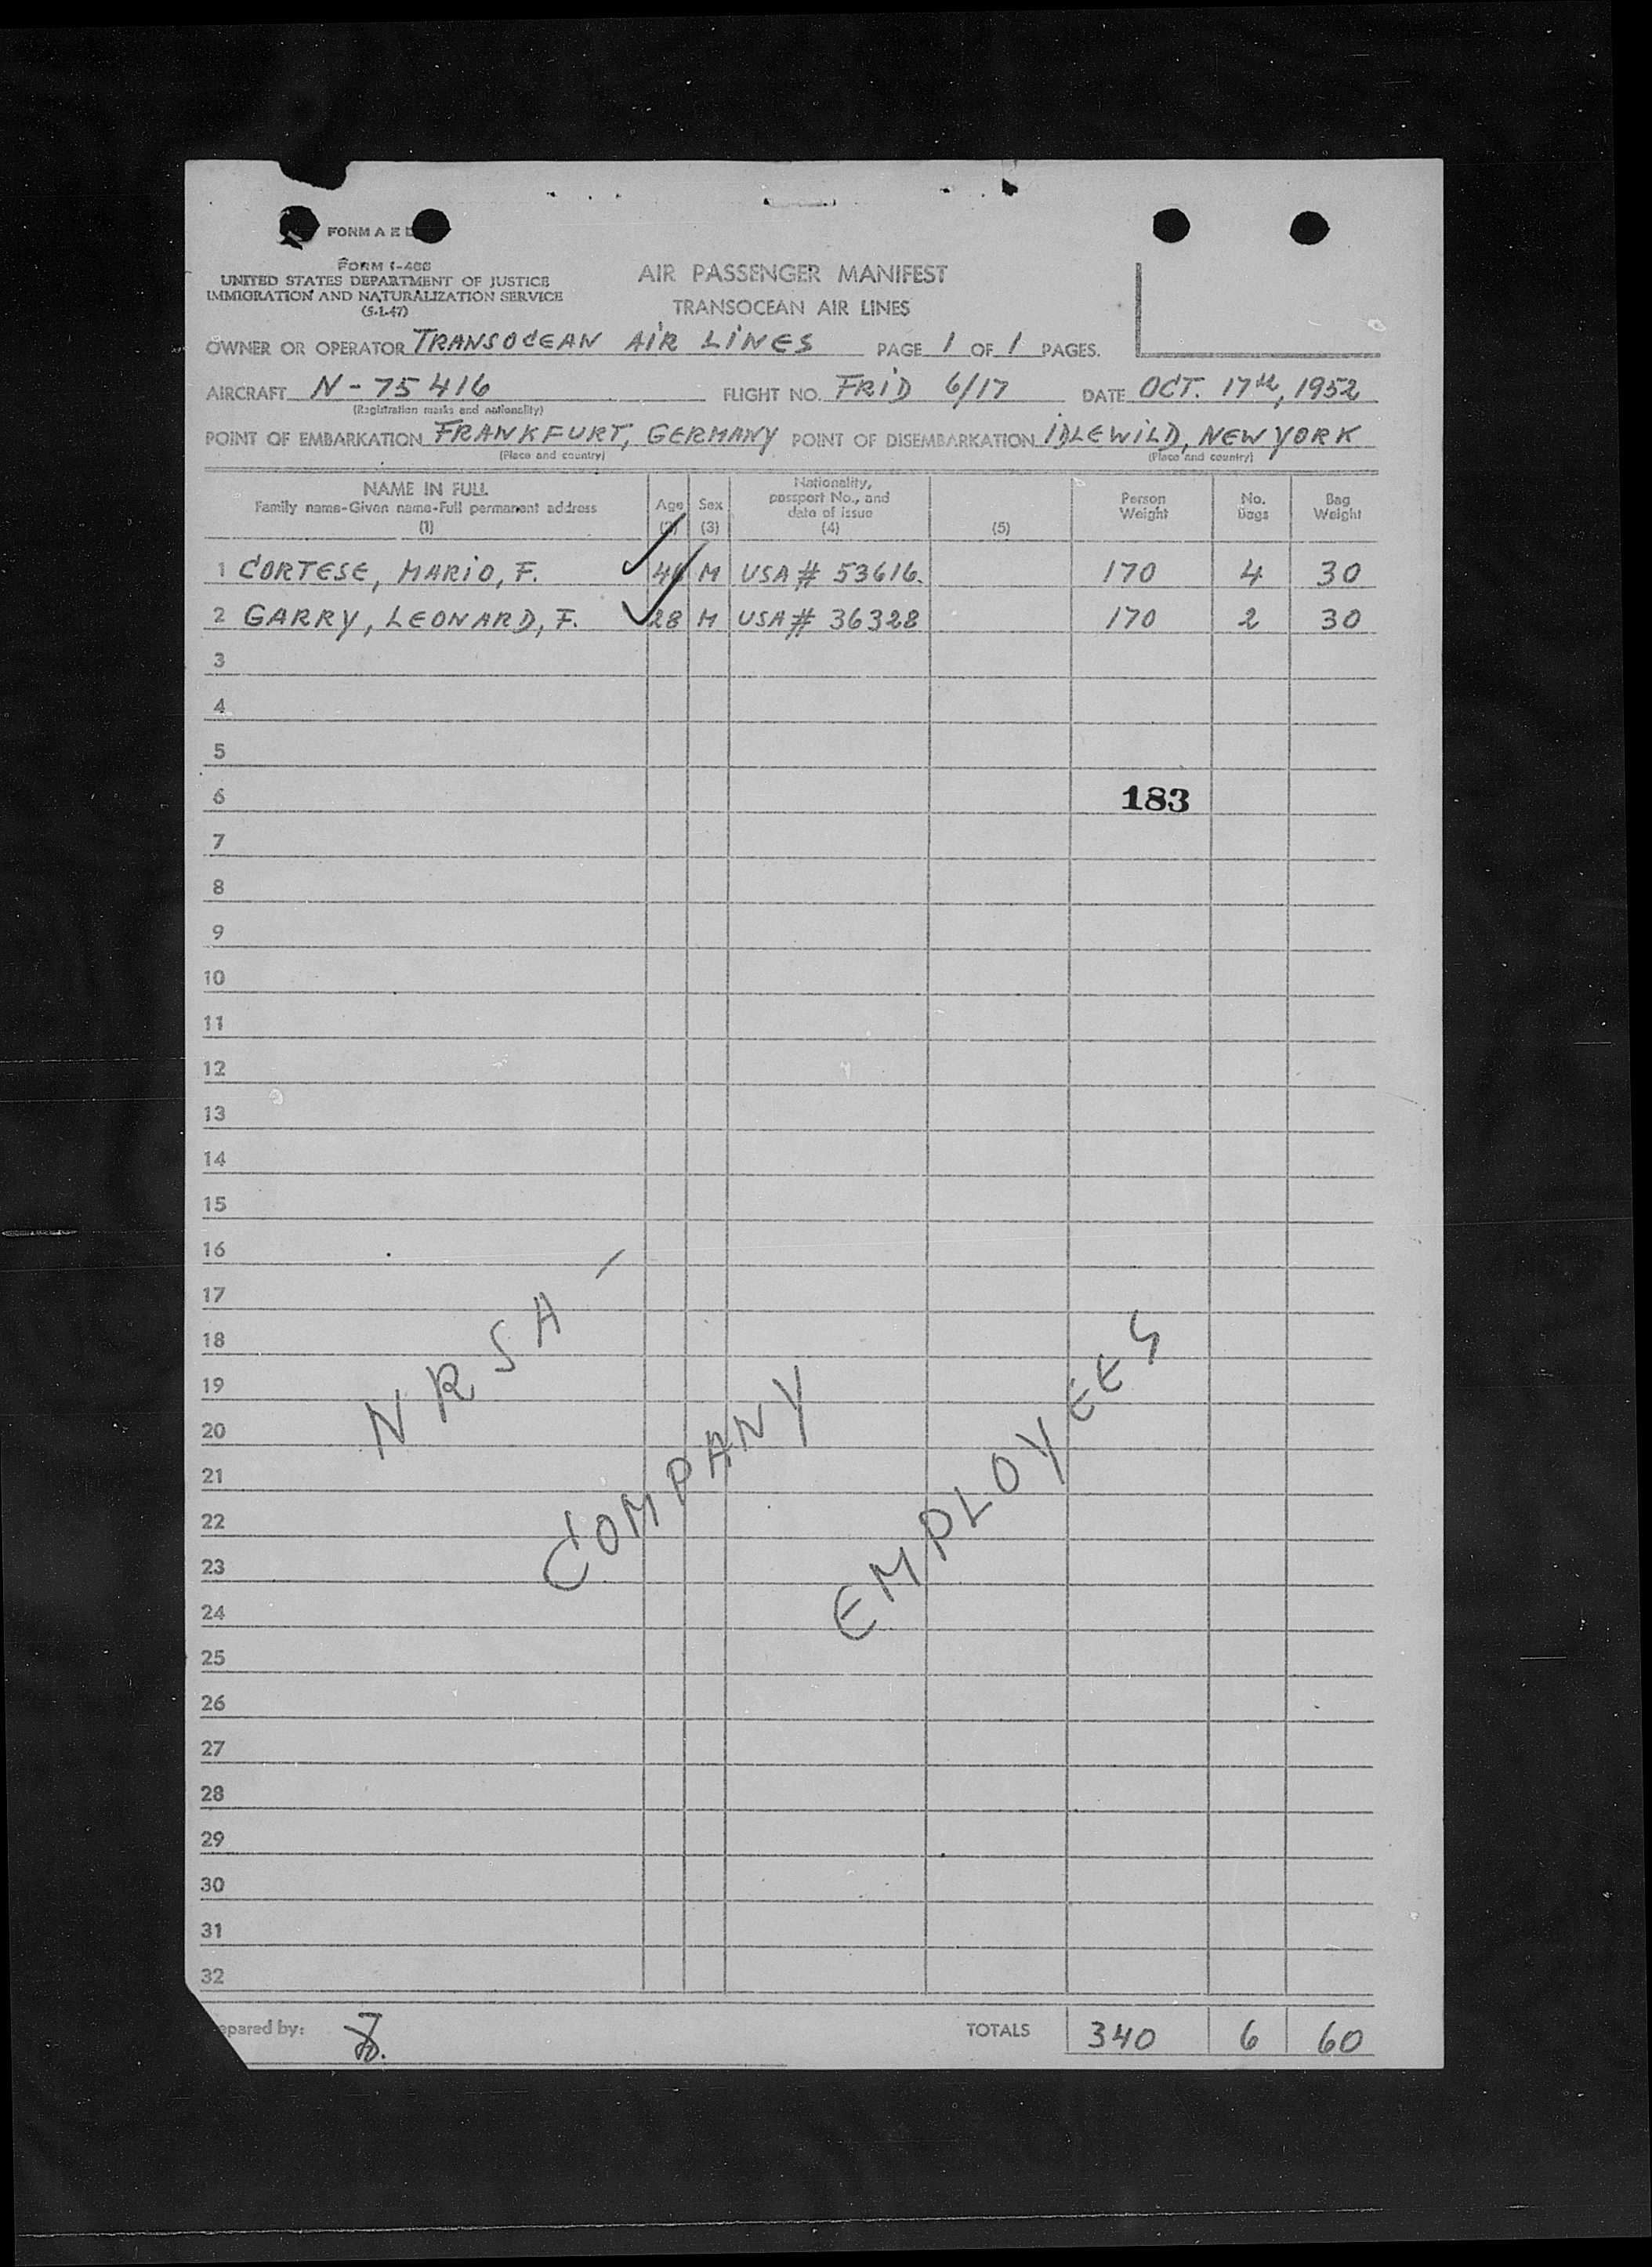 FORM A E
FORM I-466
UNITED STATES DEPARTMENT OF JUSTICE
IMMIGRATION AND NATURALIZATION SERVICE
(5-1-47)
AIR PASSENGER MANIFEST
TRANSOCEAN AIR LINES
OWNER OR OPERATOR TRANSOCEAN AIR LINES PAGE 1 OF 1 PAGES.
AIRCRAFT N-75416 FLIGHT NO. FRID 6/17 DATE OCT. 17th, 1952
(Registration marks and nationality)
POINT OF EMBARKATION FRANKFURT, GERMANY POINT OF DISEMBARKATION IDLEWILD, NEW YORK
(Place and country) (Place and country)
NAME IN FULL
Family name-Given name-Full permanent address
(1)
Age
(2)
Sex
(3)
Nationality,
passport No., and
date of issue
(4)
(5)
Person
Weight
No.
Bags
Bag
Weight
1 CORTESE, MARIO, F. M USA # 53616. 170 4 30
2 GARRY, LEONARD, F. 28 M USA # 36328 170 2 30
3
4
5
6 183
7
8
9
10
11
12
13
14
15
16
17
18
19
20
21
22
23
24
25
26
27
28
29
30
31
32
NRSA -
COMPANY
EMPLOYEES
epared by:
TOTALS 340 6 60